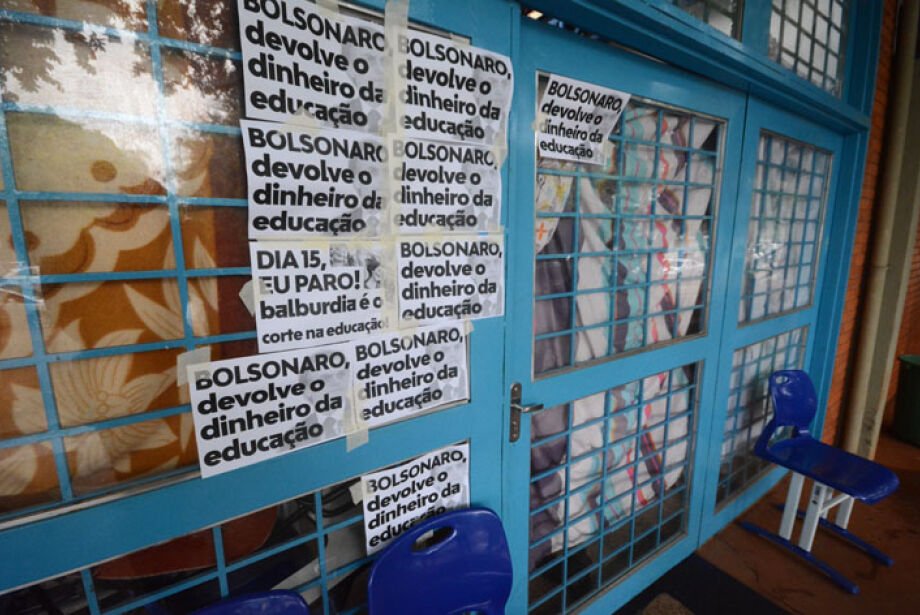 BOLSONARO,
devolve o
dinheiro da
educação
BOLSONARO,
devolve o
dinheiro da
educação
BOLSONARO,
devolve o
dinheiro da
educação
BOLSONARO,
devolve o
dinheiro da
educação
BOLSONARO,
devolve o
dinheiro da
educação
DIA 15,
EU PARO!
balburdia é o
corte na educação
BOLSONARO,
devolve o
dinheiro da
educação
BOLSONARO,
devolve o
dinheiro da
educação
BOLSONARO,
devolve o
dinheiro da
educação
BOLSONARO,
devolve o
dinheiro da
educação